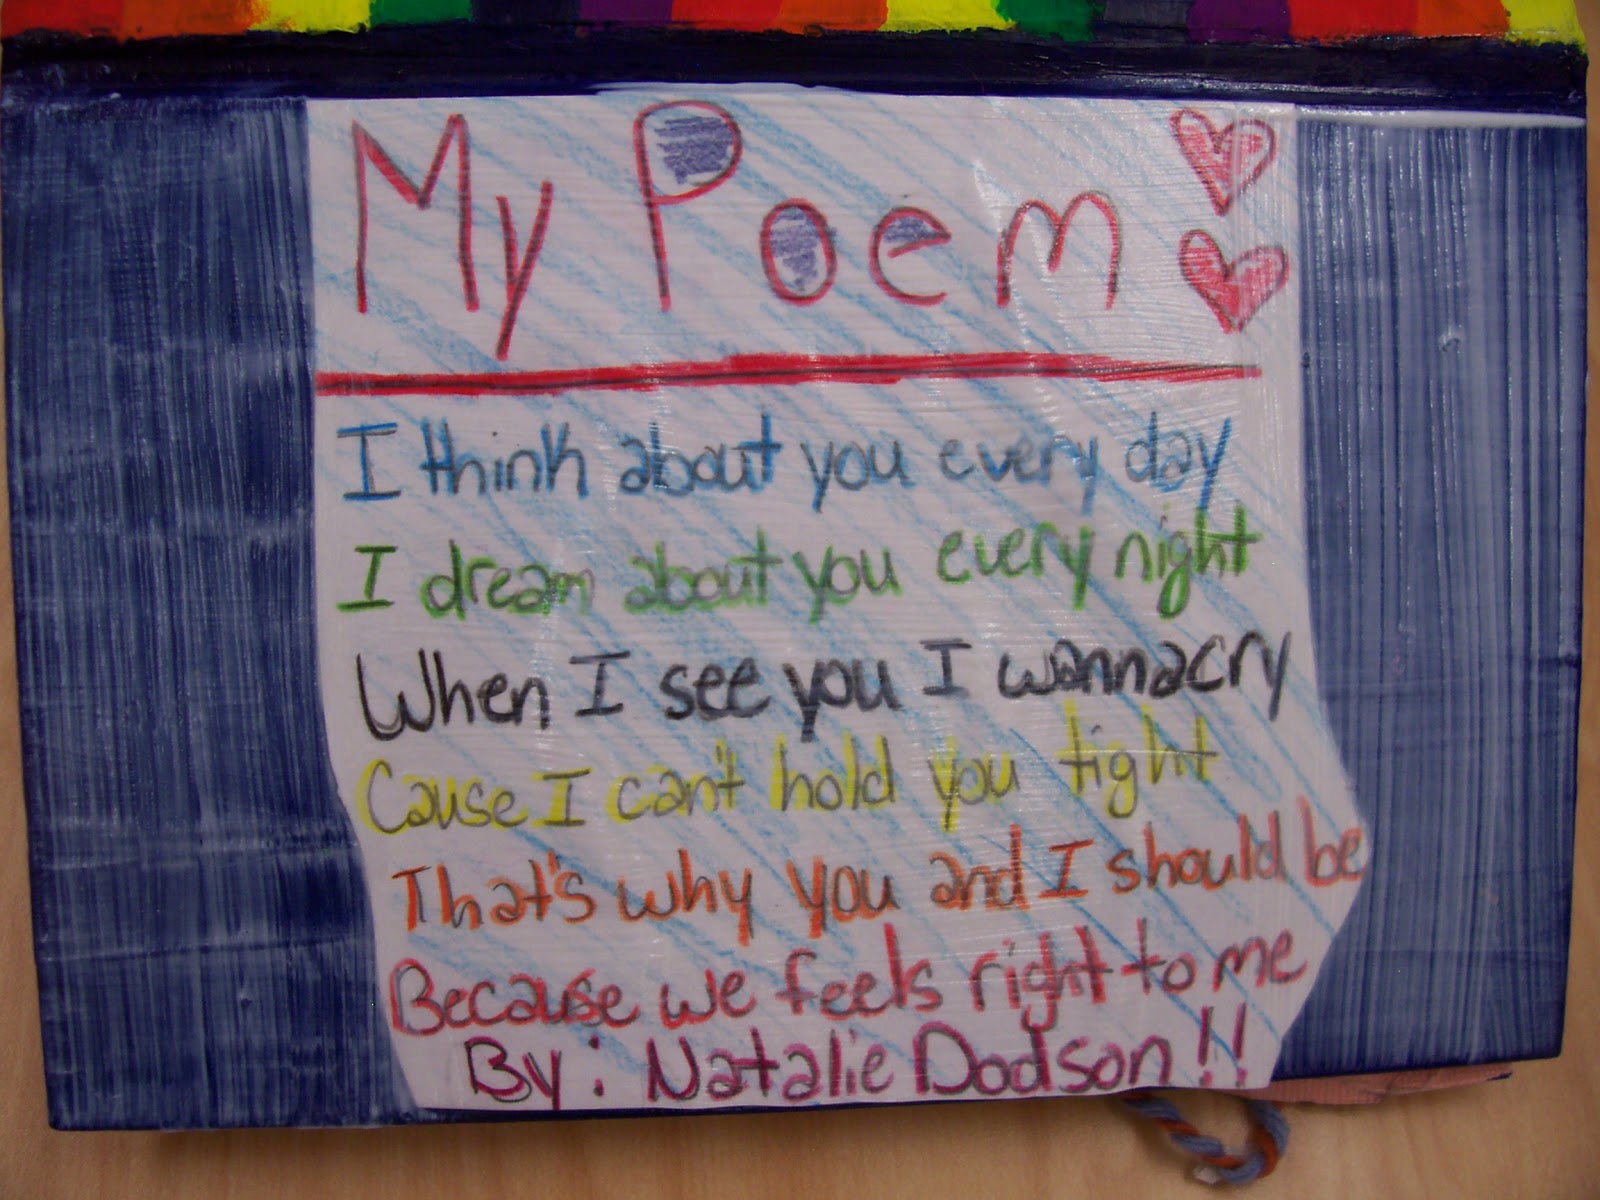 My Poem
I think about you every day
I dream about you every night
When I see you I wanna cry
Cause I can't hold you tight
That's why you and I should be
Because we feels right to me
By: Natalie Dodson!!